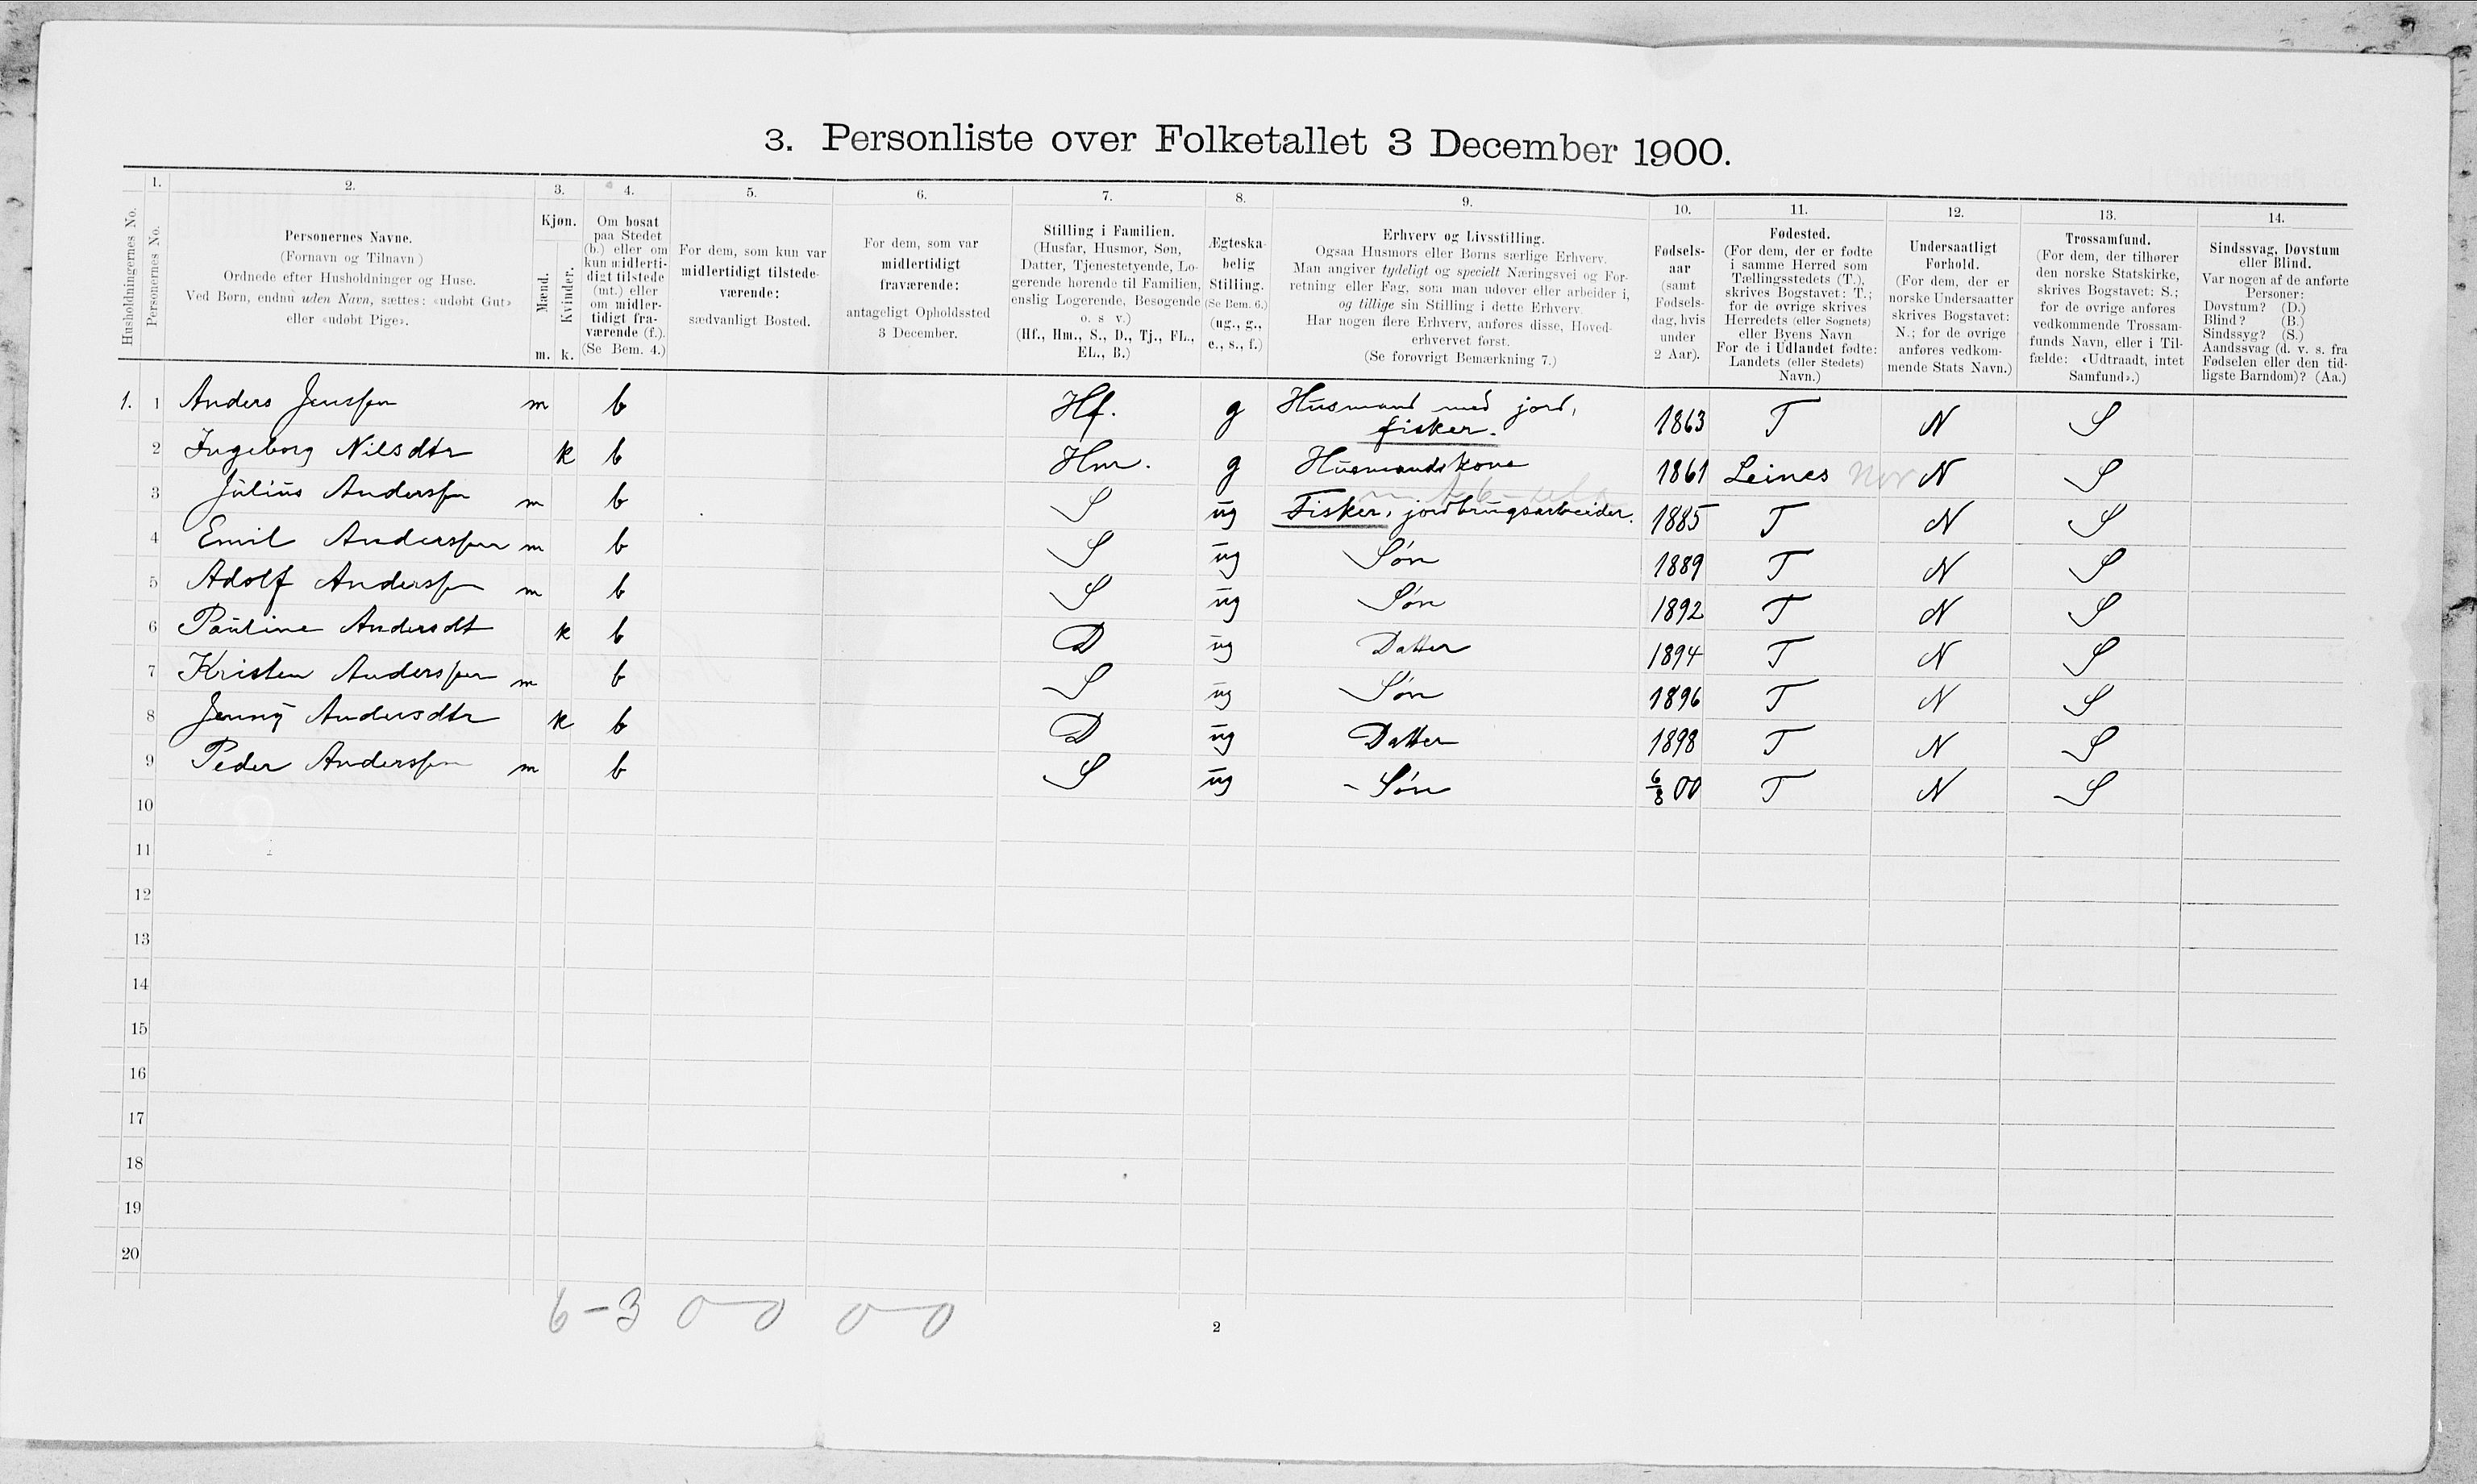 3. Personliste over Folketallet 3 December 1900.
1. 2. 3. 4. 5. 6. 7. 8. 9. 10. 11. 12. 13. 14.
Husholdningernes No.
Personernes No.
Personernes Navne.
(Fornavn og Tilnavn)
Ordnede efter Husholdninger og Huse.
Ved Børn, endnu uden Navn, sættes: «udøbt Gut»
eller «udøbt Pige».
Kjøn.
Mænd.
Kvinder.
m. k.
Om bosat
paa Stedet
(b.) eller om
kun midlerti-
digt tilstede
(mt.) eller
om midler-
tidigt fra-
værende (f.).
(Se Bem. 4.)
For dem, som kun var
midlertidigt tilstede-
værende:
sædvanligt Bosted.
For dem, som var
midlertidigt
fraværende:
antageligt Opholdssted
3 December.
Stilling i Familien.
(Husfar, Husmor, Søn,
Datter, Tjenestetyende, Lo-
gerende hørende til Familien,
enslig Logerende, Besøgende
o. s v.)
(Hf., Hm., S., D., Tj., FL.,
EL., B.)
Ægteska-
belig
Stilling.
(Se Bem. 6.)
(ug., g.,
e., s., f.)
Erhverv og Livsstilling.
Ogsaa Husmors eller Børns særlige Erhverv.
Man angiver tydeligt og specielt Næringsvei og For-
retning eller Fag, som man udøver eller arbeider i,
og tillige sin Stilling i dette Erhverv.
Har nogen flere Erhverv, anføres disse, Hoved-
erhvervet først.
(Se forøvrigt Bemærkning 7.)
Fødsels-
aar
(samt
Fødsels-
dag, hvis
under
2 Aar).
Fødested.
(For dem, der er fødte
i samme Herred som
Tællingsstedets (T.),
skrives Bogstavet: T.;
for de øvrige skrives
Herredets (eller Sognets)
eller Byens Navn
For de i Udlandet fødte:
Landets (eller Stedets)
Navn.)
Undersaatligt
Forhold.
(For dem, der er
norske Undersaatter
skrives Bogstavet:
N.; for de øvrige
anføres vedkom-
mende Stats Navn.)
Trossamfund.
(For dem, der tilhører
den norske Statskirke,
skrives Bogstavet: S.;
for de øvrige anføres
vedkommende Trossam-
funds Navn, eller i Til-
fælde: «Udtraadt, intet
Samfund».)
Sindssvag, Døvstum
eller Blind.
Var nogen af de anførte
Personer:
Døvstum? (D.)
Blind? (B.)
Sindssyg? (S.)
Aandssvag (d. v. s. fra
Fødselen eller den tid-
ligste Barndom)? (Aa.)
1. 1 Anders Jenssen m b Hf. g Husmand med jord, 1863 T N S
fisker.
2 Ingeborg Nilsdtr k b Hm. g Husmandskone 1861 Leines N S
3 Julius Anderssen m b S ug Fisker, jordbrugsarbeider. 1885 T N S
4 Emil Anderssen m b S ug Søn 1889 T N S
5 Adolf Anderssen m b S ug Søn 1892 T N S
6 Pauline Andersdt k b D ug Datter 1894 T N S
7 Kristen Anderssen m b S ug Søn 1896 T N S
8 Jenny Andersdtr k b D ug Datter 1898 T N S
9 Peder Anderssen m b S ug - Søn 6/8 00 T N S
10
11
12
13
14
15
16
17
18
19
20
6-3 0-0 0-0
2